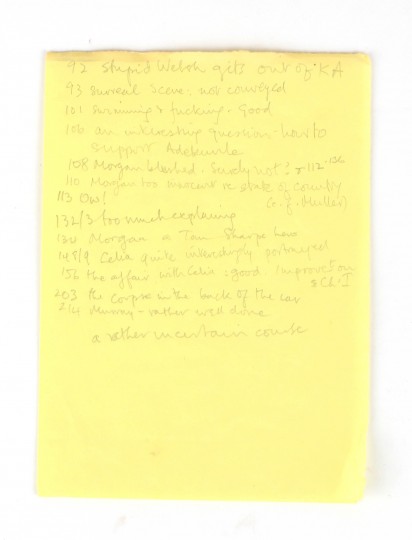 92 stupid Welsh gits out of KA
93 surreal scene: not conveyed
101 swimming & fucking - Good
106 an interesting question - how to
support Adekunle
108 Morgan blushed. Surely not? + 112
110 Morgan too innocent re state of country
113 Ow! (e.g. Muller)
132/3 too much explaining
Morgan a Tom Sharpe hero
148/9 Celia quite interestingly portrayed
156 the affair with Celia: good improves on
203 the corpse in the back of the car
214 Murray - rather well done
a rather uncertain course